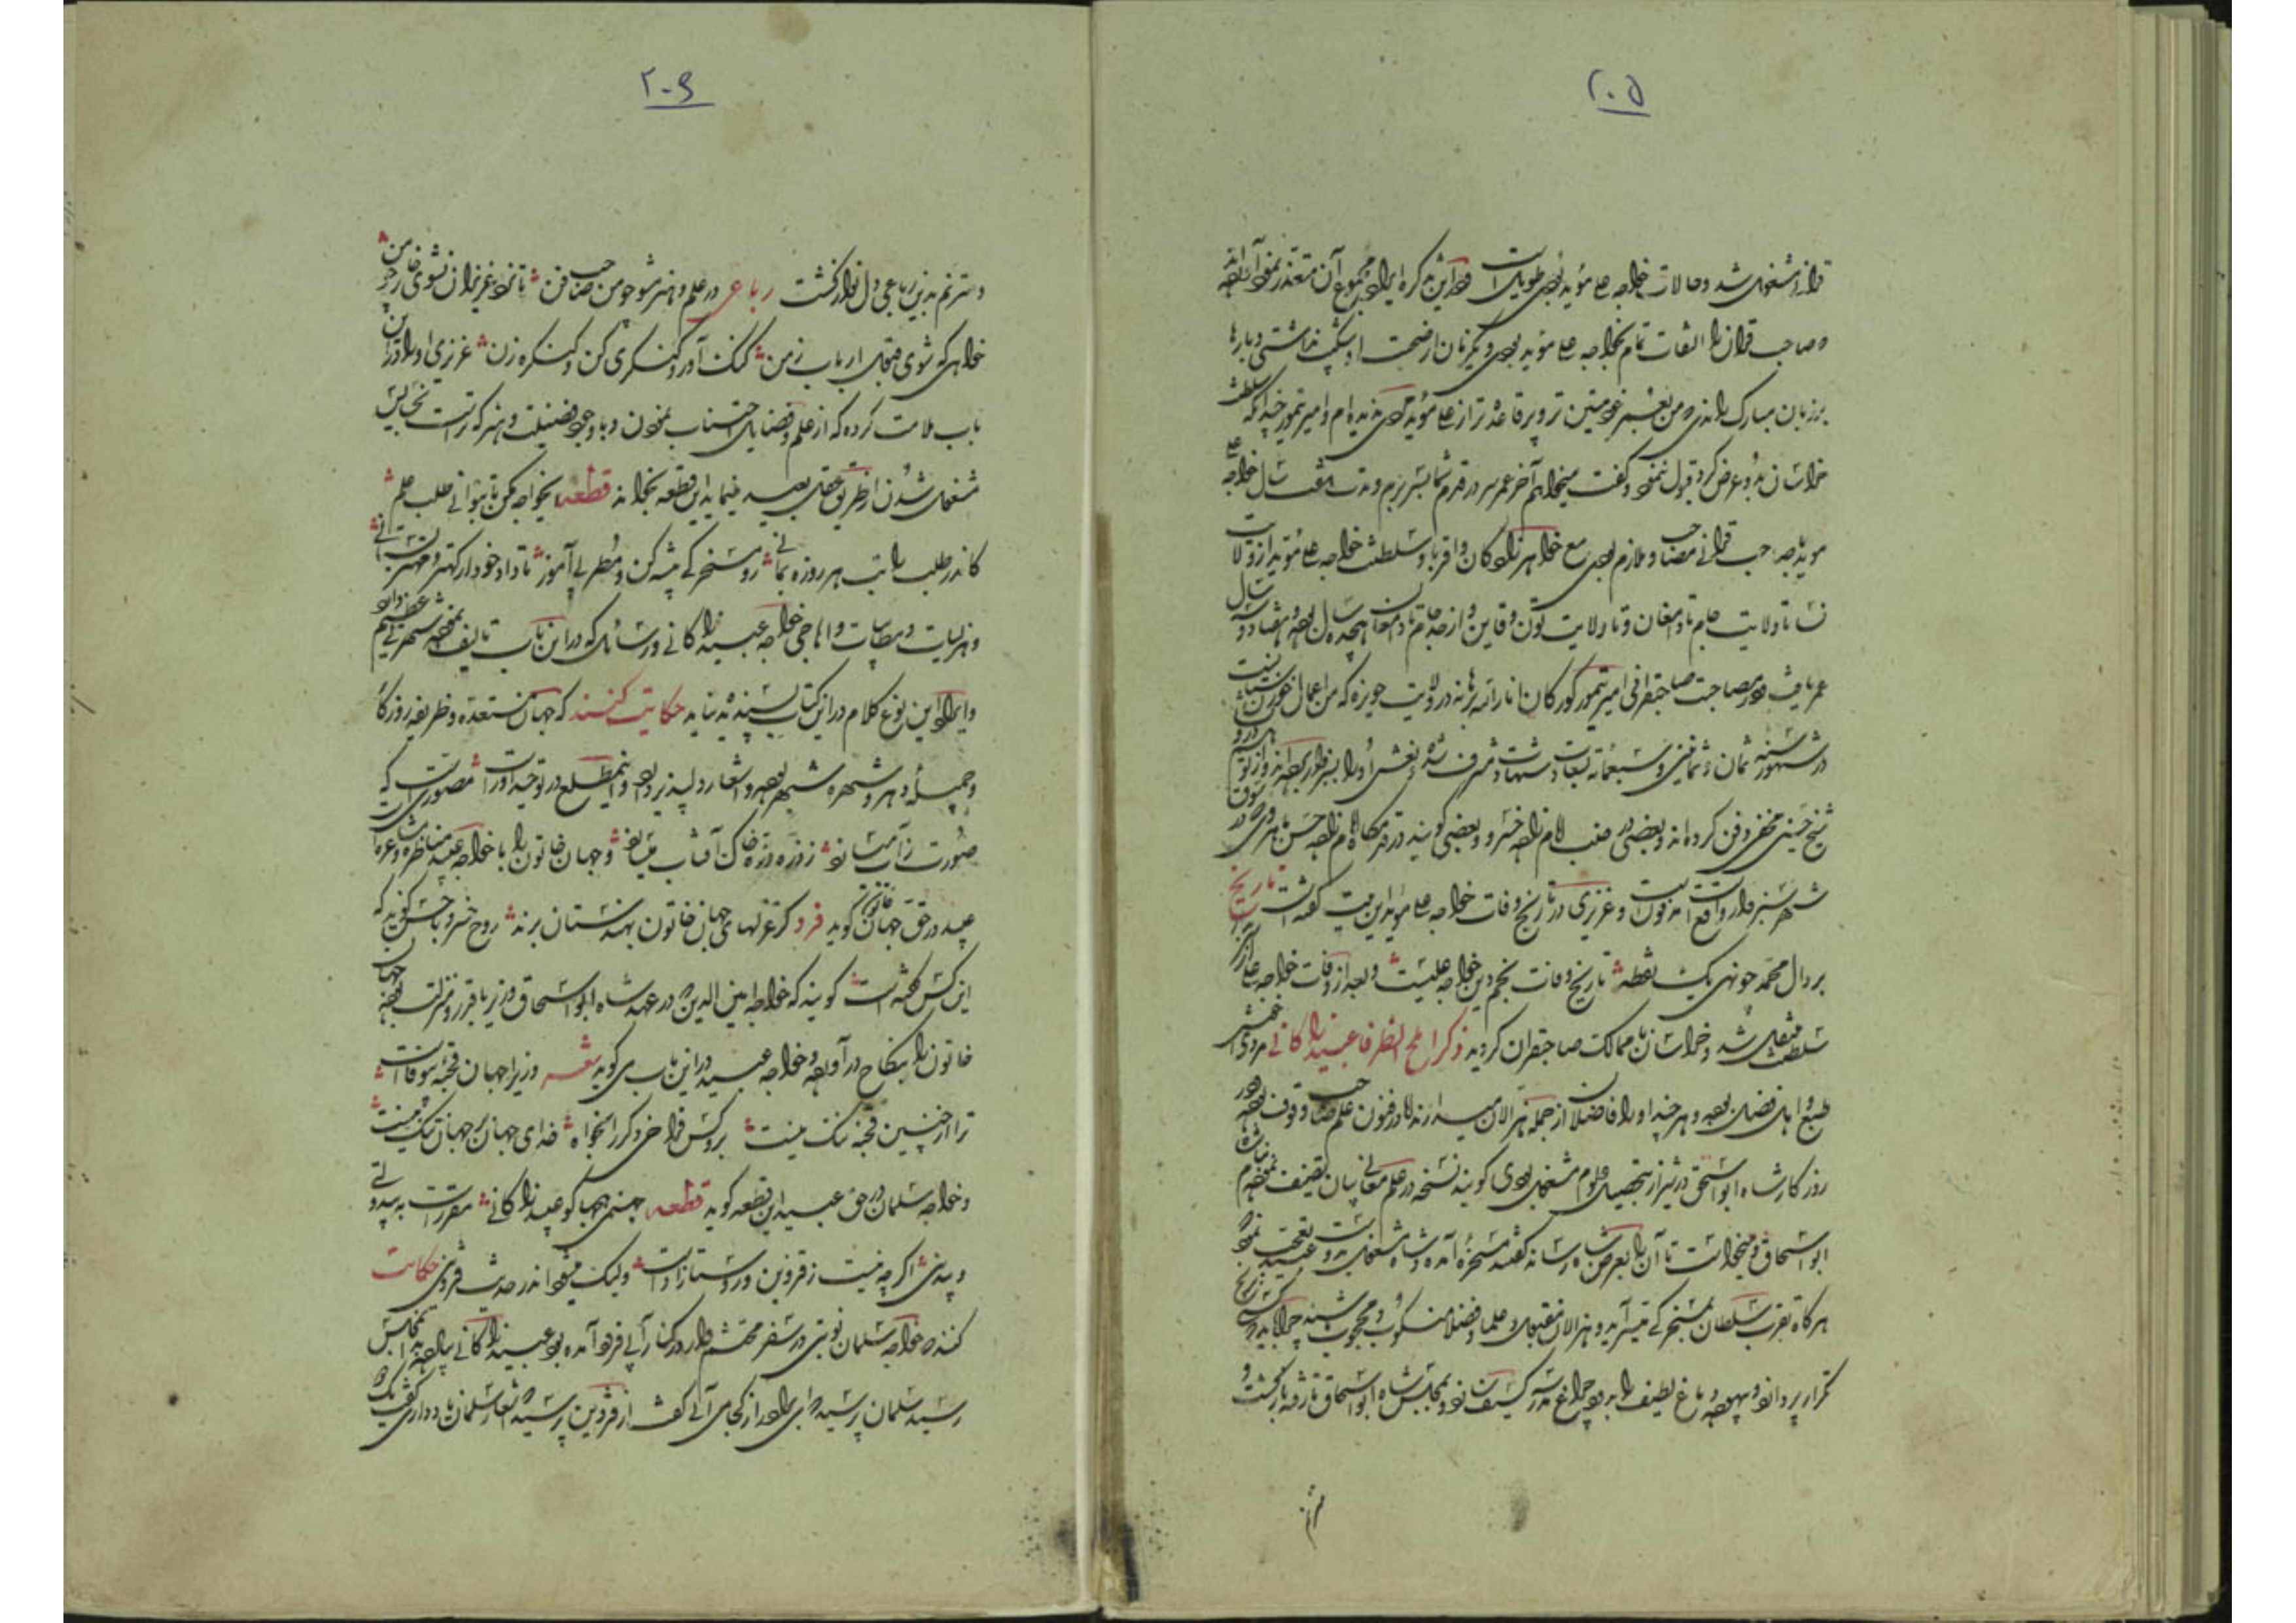 ۲۰۵
قرا و مشغول شد و حالات خواجه علی مؤید بسی طویل است در این تذکره ایراد مجموع آن متعذر نمود
و صاحب قران را التفات تمام بخواجه علی مؤید بودی و یکزمان از صحبت او شکیب نداشتی و بارها
بر زبان مبارک راندی که من بعمر خود متین تر و برقاعده تر از علی مؤید مردی ندیده ام و امیر تیمور چندانکه سلطنت
خراسان بدو عرض کرد قبول ننمود و گفت میخواهم آخر عمر سر در قدم شما بسر برم و مدت هفت سال خواجه علی
مؤید صاحب قرانی مصاحب و ملازم بودی مع خواهرزادگان و اقربا و سلطنت خواجه علی مؤید از ولایت
نسا تا ولایت جام تا دامغان و تا ولایت تون و قاین و از جام تا دامغان هیجده سال بوده و هفتاد و سه سال
عمر یافت در مصاحبت صاحبقرانی امیر تیمور کورکان انار الله برهانه در ولایت حویزه که من اعمال خوزستانست
در شهور سنه ثمان و ثمانین و سبعمائة بسعادت شهادت مشرف شد و نعش او را بسبزوار برده اند و از بیم
شیخ حسینی مخفی دفن کرده اند و بعضی در عقب امام زاده خسرو و بعضی گویند در قدمگاه امام زاده حسن
شهر سبزوار واقع است مدفونست و عزیزی در تاریخ وفات خواجه علی مؤید این بیت گفته است تاریخ
بر دال محمد چو نهی یک نقطه تاریخ وفات نجم دین خواجه علیست و بعد از وفات خواجه علی از آن
سلطنت منتقل شد و خراسان با ممالک صاحبقران کردید ذکر املح الظرفا عبید زاکانی مردی خوش
طبع و اهل فضل بوده و هر چند او را فاضلان از جمله هزالان میدارند اما در فنون علم صاحب وقوف بوده در
روزکار شاه ابو اسحق در شیراز بتحصیل علوم مشغول بودی گویند نسخه در علم معانی بیان تصنیف نمود بنام شاه
ابو اسحاق و میخواست تا آن را بعرض شاه رساند گفتند مسخره آمده و شاه بدو مشغولست عبید تعجب نمود
هر کاه تقرب سلطان بمسخرکی میسر آید و هزالان مقبول و علما و فضلا منکوب و محجوب باشند چرا باید که کسی رنج
تکرار پردازد و بیهوده دماغ لطیف را بدود چراغ مدرسه کثیف سازد بمجلس شاه ابو اسحاق نارفته بازگشت و
مترنم
۲۰۶
و مترنم بدین رباعی دل نواز گشت رباعی در علم و هنر مشو چو من صاحب فن تا نزد عزیزان نشوی خوار چو من
خواهی که شوی قبول ارباب زمن کنگ آور و کنکری کن و کنکره زن عزیزی او را در این
باب ملامت کرده که از علم و فضایل اجتناب نمودن و با وجود فضیلت و هنر که تراست بخسایس
مشغول شدن از طریق عقل بعید مینماید این قطعه بخواند قطعه ای خواجه مکن تا بتوانی طلب علم
کاندر طلب راتب هر روزه بمانی رو مسخرکی پیشه کن و مطربی آموز تا داد خود از کهتر و مهتر بستانی
و هزلیات و مطایبات و اهاجی خواجه عبید زاکانی و رسائل که در این باب تالیف نموده شهرتی عظیم دارد
و ایراد این نوع کلام در این کتاب پسندیده نیاید حکایت کنند که جهان خاتون مستعده و ظریفه روزکار
و جمیله دهر و شهره شهر بوده و اشعار دلپذیر دارد و این مطلع در توحید او راست مصوریست که
صورت ز آب میسازد ز ذره ذره خاک آفتاب میسازد و جهان خاتون را با خواجه عبید مناظره و مشاعره است
عبید در حق جهان خاتون گوید فرد گر غزلهای جهان خاتون بهندستان برند روح خسرو با حسن گوید که
این کس گفته است گویند که خواجه امین الدین در عهد شاه ابو اسحاق وزیر با قدر و منزلت بوده جهان
خاتون را بنکاح در آورده و خواجه عبید در این باب می گوید شعر وزیرا جهان قحبه بیوفاست
ترا از چنین قحبه ننگ نیست برو کس فراخی دگر را بخواه خدای جهان را جهان تنگ نیست
و خواجه سلمان در حق عبید این قطعه گوید قطعه جهنمی هجاگو عبید زاکانی مقررست به بیدولتی
و بیدینی اگرچه نیست ز قزوین و روستازاده است ولیک میشود اندر حدیث قزوینی حکایت
کنند خواجه سلمان نوبتی در سفر محتشم وار در کنار آبی فرود آمده بود عبید زاکانی پیاده بمجلس
رسید سلمان پرسید که ای برادر از کجا می آئی گفت از قزوین پرسید که اشعار سلمان یاد داری گفت یک دو